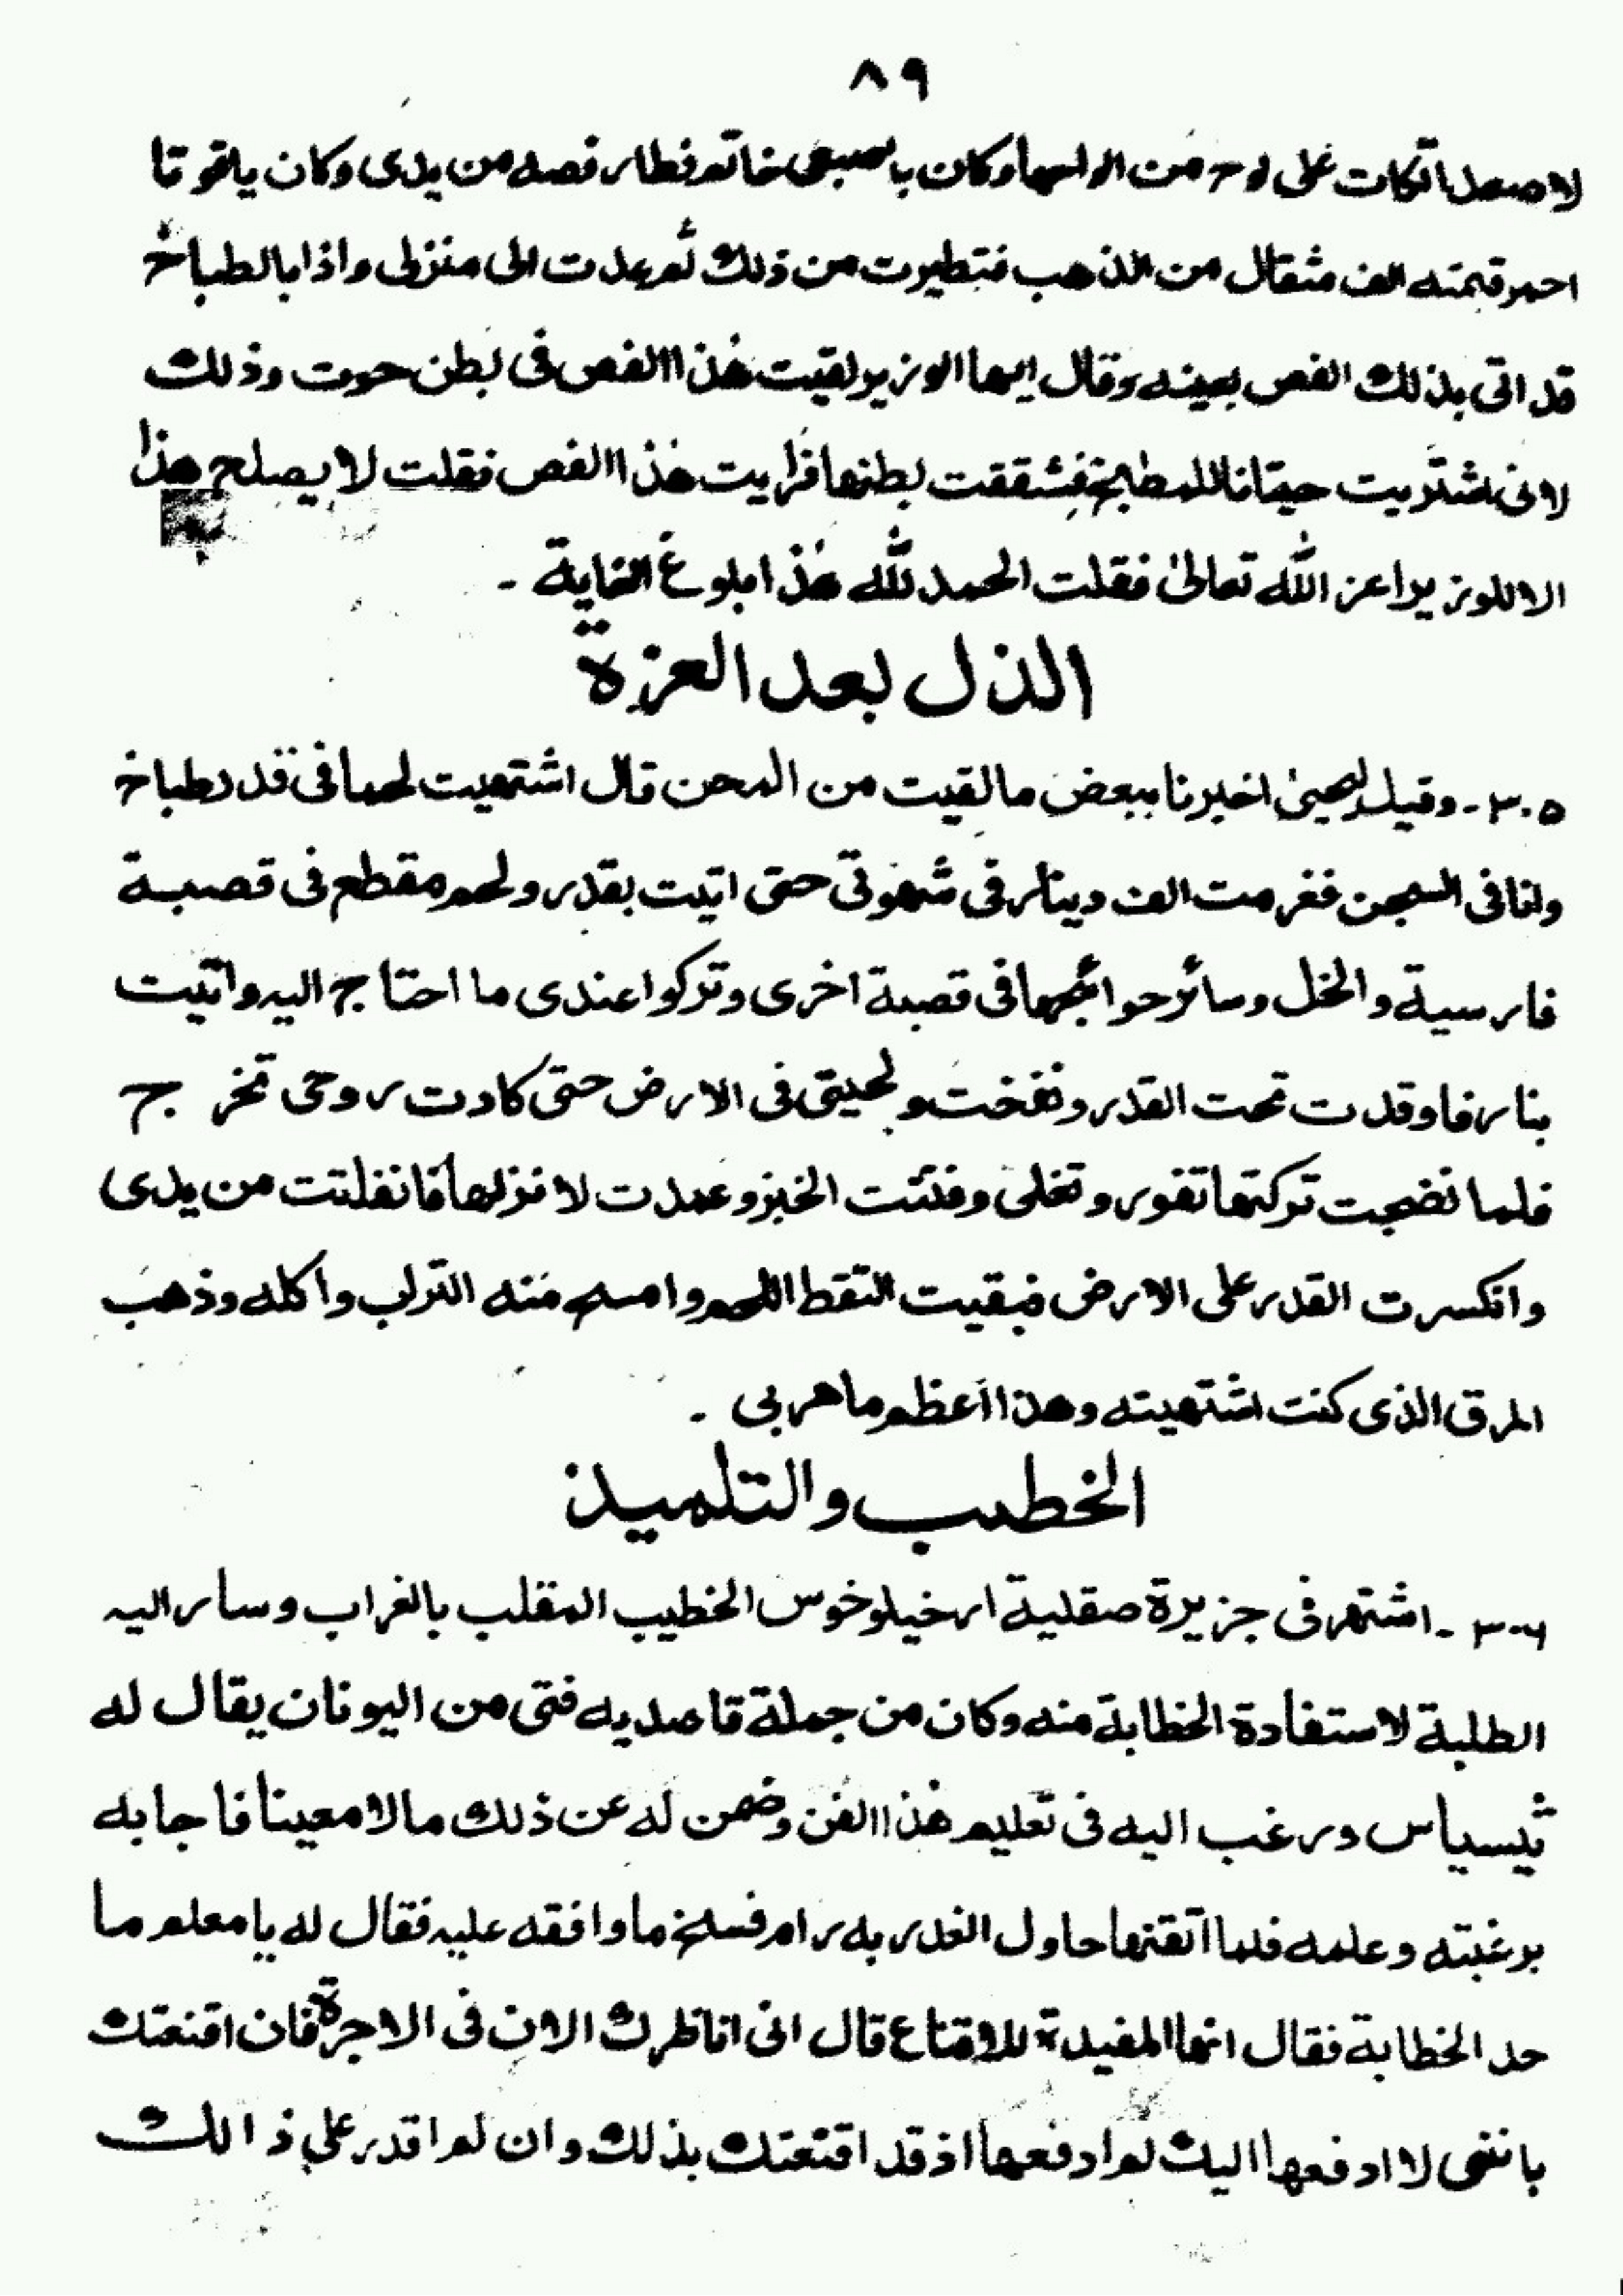 ٨٩
لاصعد اتكات على لوح من الواحها وكان باصبعى خاتم فطار فصه من يدى وكان ياقوتا
احمر قيمته الف مثقال من الذهب فتطيرت من ذلك ثم عدت الى منزلى واذا بالطباخ
قد اتى بذلك الفص بعينه وقال ايها الوزير لقيت هذا الفص فى بطن حوت وذلك
لانى اشتريت حيتانا للمطبخ فشققت بطنها فرايت هذا الفص فقلت لا يصلح هذا
الا للوزير اعز الله تعالىٰ فقلت الحمد لله هذا بلوغ الغاية ۔
الذل بعد العزة
٣٠٥۔ وقيل ليحيىٰ اخبرنا ببعض ما لقيت من المحن قال اشتهيت لحما فى قدر طباخ
وانا فى السجن فغرمت الف دينار فى شهوتى حتى اتيت بقدر ولحم مقطع فى قصبة
فارسية والخل وسائر حوائجها فى قصبة اخرى وتركوا عندى ما احتاج اليه واتيت
بنار فاوقدت تحت القدر ونفخت ولحيتى فى الارض حتى كادت روحى تخرج
فلما نضجت تركتها تفور وتغلى وفتتت الخبز وعمدت لانزلها فانفلتت من يدى
وانكسرت القدر على الارض فبقيت التقط اللحم وامسح منه التراب واكله وذهب
المرق الذى كنت اشتهيته وهذا اعظم ما مر بى ۔
الخطيب والتلميذ
٣٠٦۔ اشتهر فى جزيرة صقلية ارخيلوخوس الخطيب المقلب بالغراب وسار اليه
الطلبة لاستفادة الخطابة منه وكان من جملة قاصديه فتى من اليونان يقال له
ثيسياس ورغب اليه فى تعليم هذا الفن وضمن له عن ذلك مالا معينا فاجابه
برغبته وعلمه فلما اتقنها حاول الغدر به رام فسخ ما وافقه عليه فقال له يا معلم ما
حد الخطابة فقال انها المفيدة للاقناع قال انى اناظرك الان فى الاجرة فان اقنعتك
باننى لا ادفعها اليك لم ادفعها اذ قد اقنعتك بذلك وان لم اقدر على ذالك